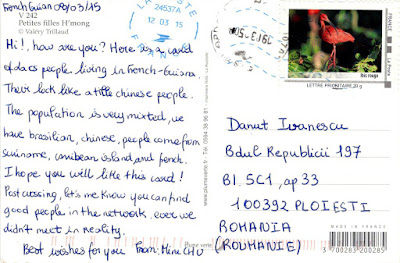 French Guiana 09/03/15
V 242
Petites filles H'mong
© Valery Trillaud
LA POSTE
24537A
12 03 15
Hi!, how are you? Here is a card
of Laos people living in French-Guiana.
Their look like a little chinese people.
The population is very mixted, we
have brasilian, chinese, people come from
suriname, caribean island and french.
I hope you will like this card!
Postcrossing, let's me know you can find
good people in the network, ever we
didn't meet in reality.
Best wishes for you From: Mme CHU
www.plumeverte.fr
FRANCE
La Poste
Ibis rouge
LETTRE PRIORITAIRE 20 g
Danut Ivanescu
Bdul Republicii 197
Bl. 5C1, ap 33
100392 PLOIESTI
ROMANIA
(ROUMANIE)
MADE IN FRANCE
3 700283 200285